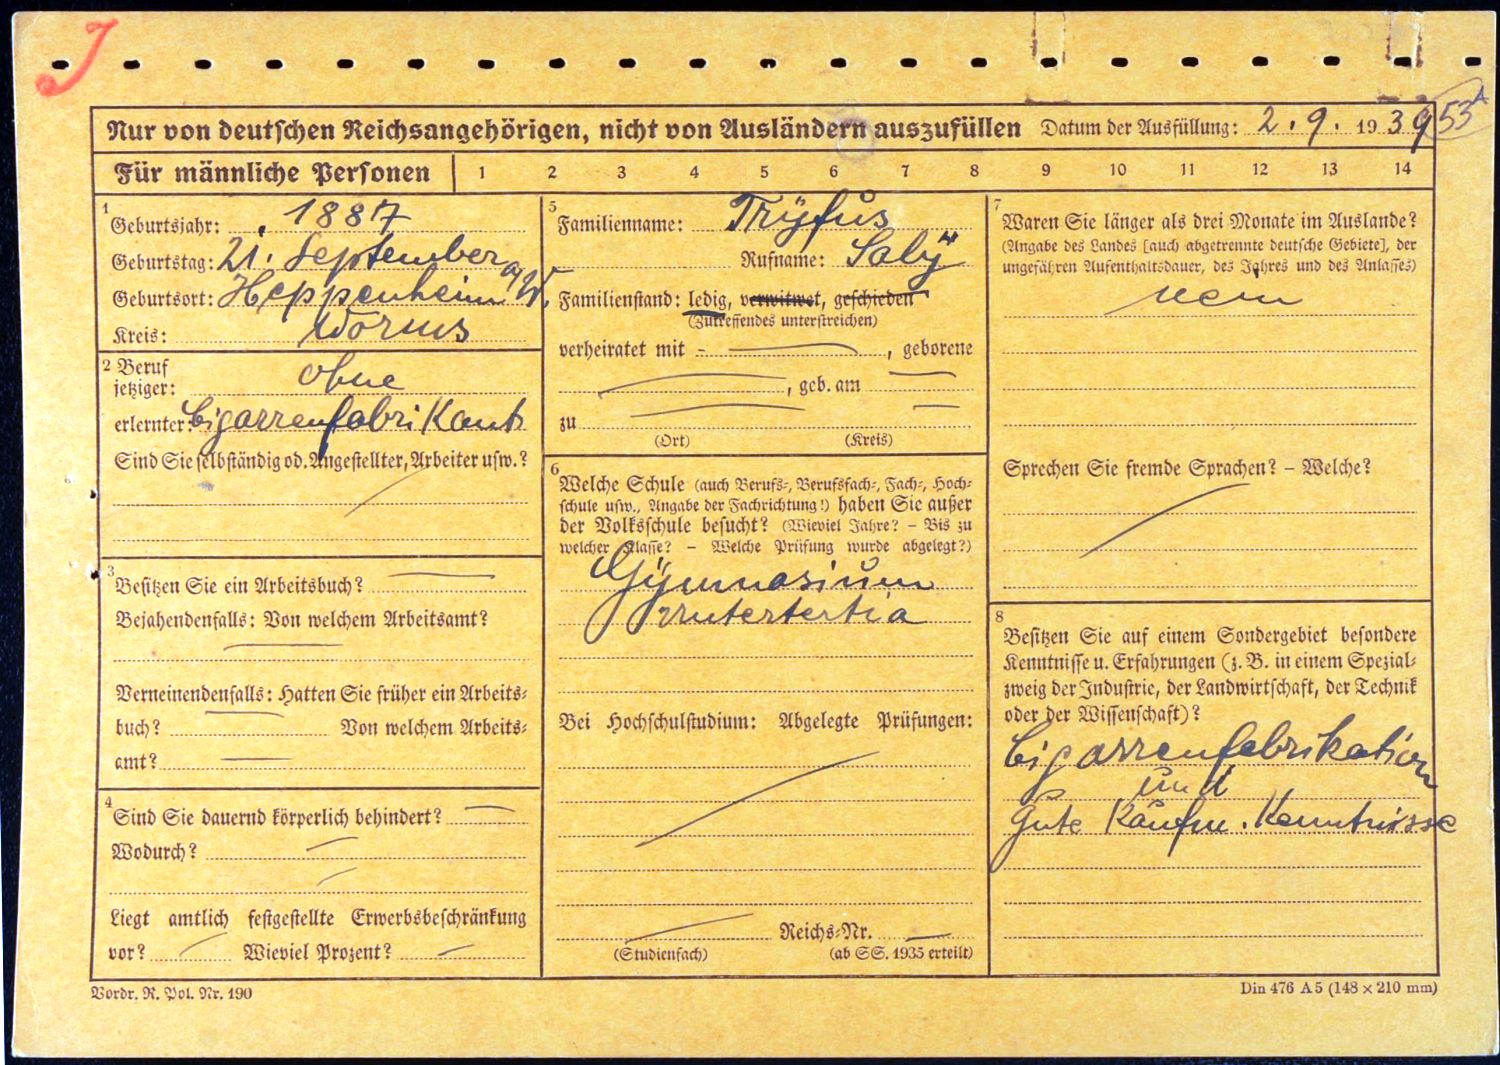 J
Nur von deutschen Reichsangehörigen, nicht von Ausländern auszufüllen Datum der Ausfüllung: 2. 9. 1939 53 A
Für männliche Personen 1 2 3 4 5 6 7 8 9 10 11 12 13 14
1
Geburtsjahr: 1887
Geburtstag: 21. September
Geburtsort: Heppenheim a/W.
Kreis: Worms
2 Beruf
jetziger: ohne
erlernter: Cigarrenfabrikant
Sind Sie selbständig od. Angestellter, Arbeiter usw.?
3
Besitzen Sie ein Arbeitsbuch?
Bejahendenfalls: Von welchem Arbeitsamt?
Verneinendenfalls: Hatten Sie früher ein Arbeits-
buch? Von welchem Arbeits-
amt?
4
Sind Sie dauernd körperlich behindert?
Wodurch?
Liegt amtlich festgestellte Erwerbsbeschränkung
vor? Wieviel Prozent?
5
Familienname: Tryfus
Rufname: Saly
Familienstand: ledig, verwitwet, geschieden
(Zutreffendes unterstreichen)
verheiratet mit - , geborene
, geb. am
zu
(Ort) (Kreis)
6
Welche Schule (auch Berufs-, Berufsfach-, Fach-, Hoch-
schule usw., Angabe der Fachrichtung!) haben Sie außer
der Volksschule besucht? (Wieviel Jahre? – Bis zu
welcher Klasse? – Welche Prüfung wurde abgelegt?)
Gymnasium
Untertertia
Bei Hochschulstudium: Abgelegte Prüfungen:
Reichs-Nr.
(Studienfach) (ab SS. 1935 erteilt)
7
Waren Sie länger als drei Monate im Auslande?
(Angabe des Landes [auch abgetrennte deutsche Gebiete], der
ungefähren Aufenthaltsdauer, des Jahres und des Anlasses)
nein
Sprechen Sie fremde Sprachen? – Welche?
8
Besitzen Sie auf einem Sondergebiet besondere
Kenntnisse u. Erfahrungen (z. B. in einem Spezial-
zweig der Industrie, der Landwirtschaft, der Technik
oder der Wissenschaft)?
Cigarrenfabrikation
und
Gute Kaufm. Kenntnisse
Vordr. R. Pol. Nr. 190
Din 476 A 5 (148 × 210 mm)